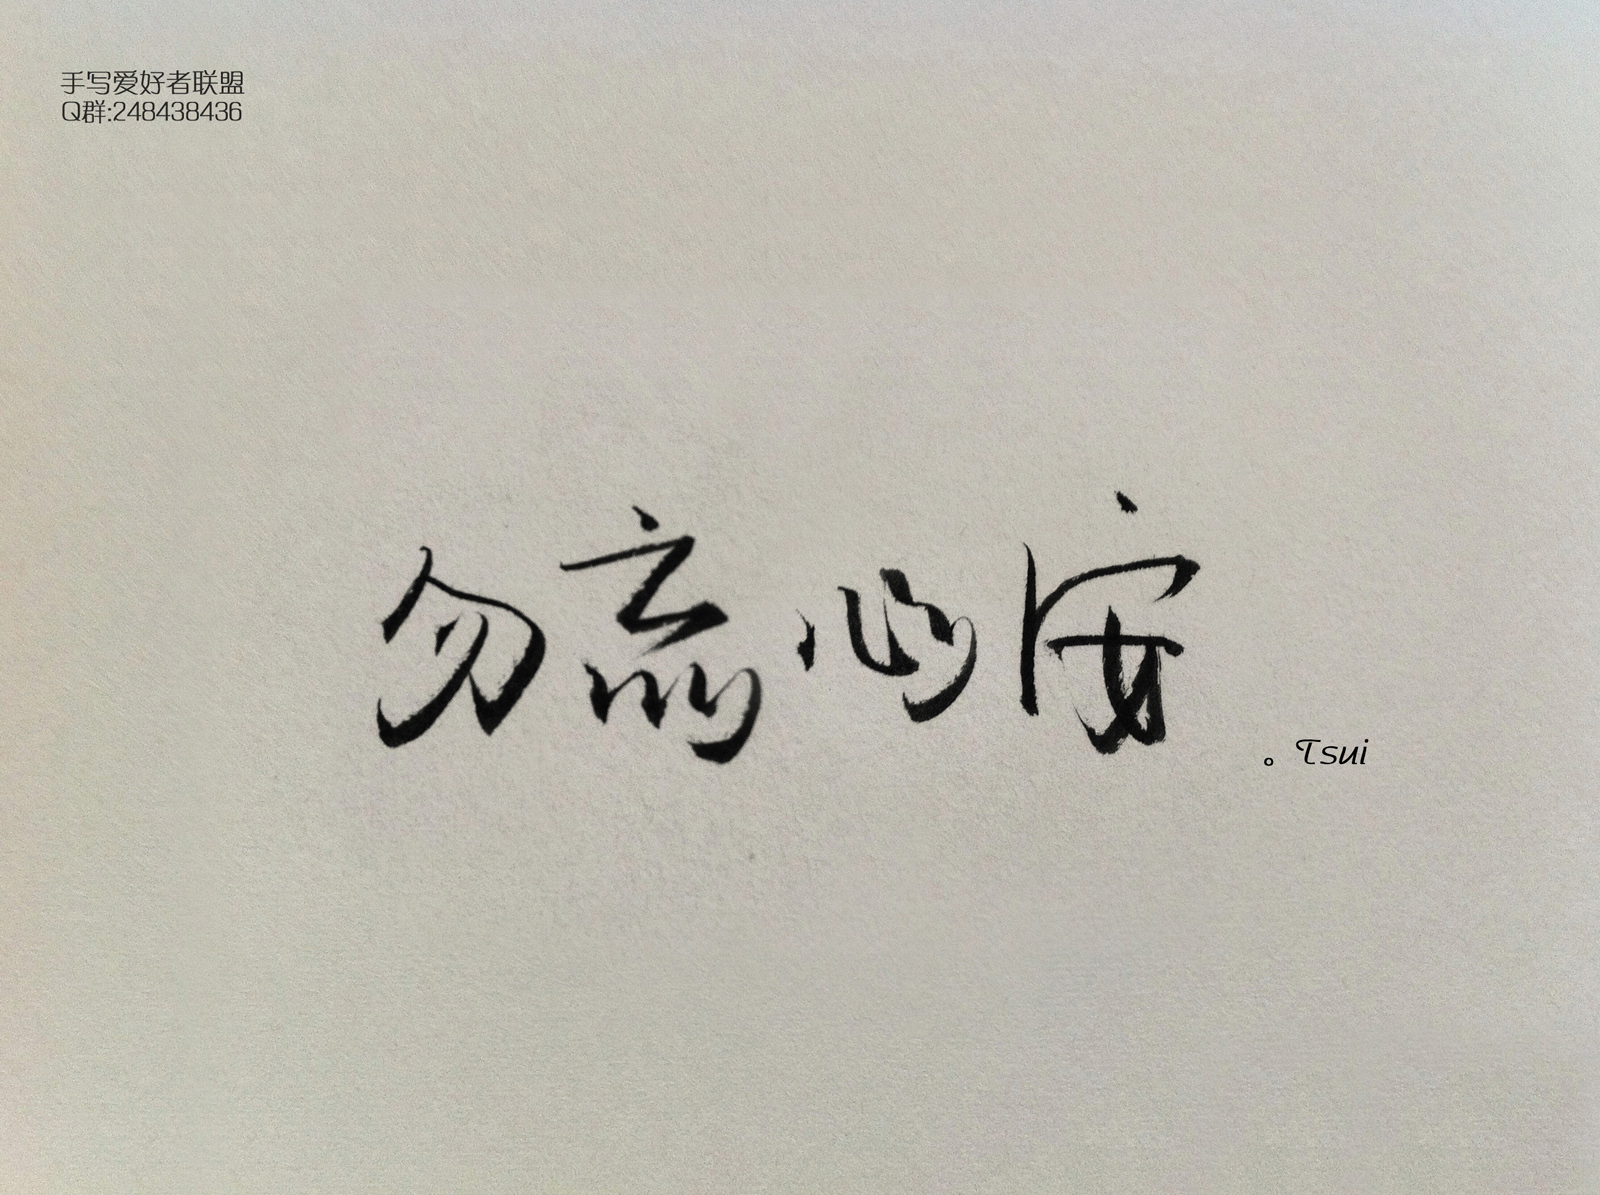 手写爱好者联盟
Q群:248438436
勿忘心安
。Tsui